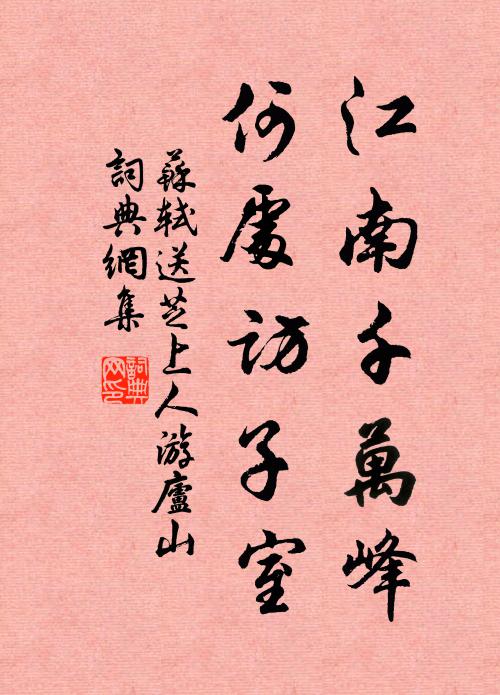 江南千萬峰
何處訪子室
蘇軾送芝上人游廬山
詞典網集
詞典网印